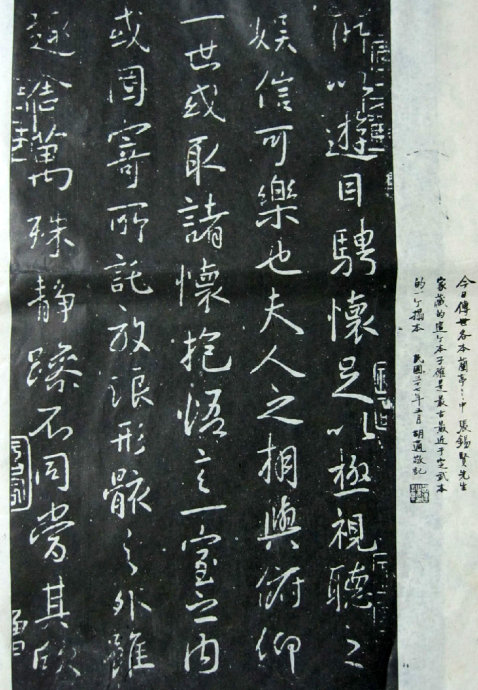 今日傳世各本蘭亭之中張錫賢先生
家藏的這个本子確是最古最近于定武本
的一个搨本 民國三十七年五月 胡適敬記
所以遊目騁懷足以極視聽之
娛信可樂也夫人之相與俯仰
一世或取諸懷抱悟言一室之内
或因寄所託放浪形骸之外雖
趣舍萬殊靜躁不同當其欣